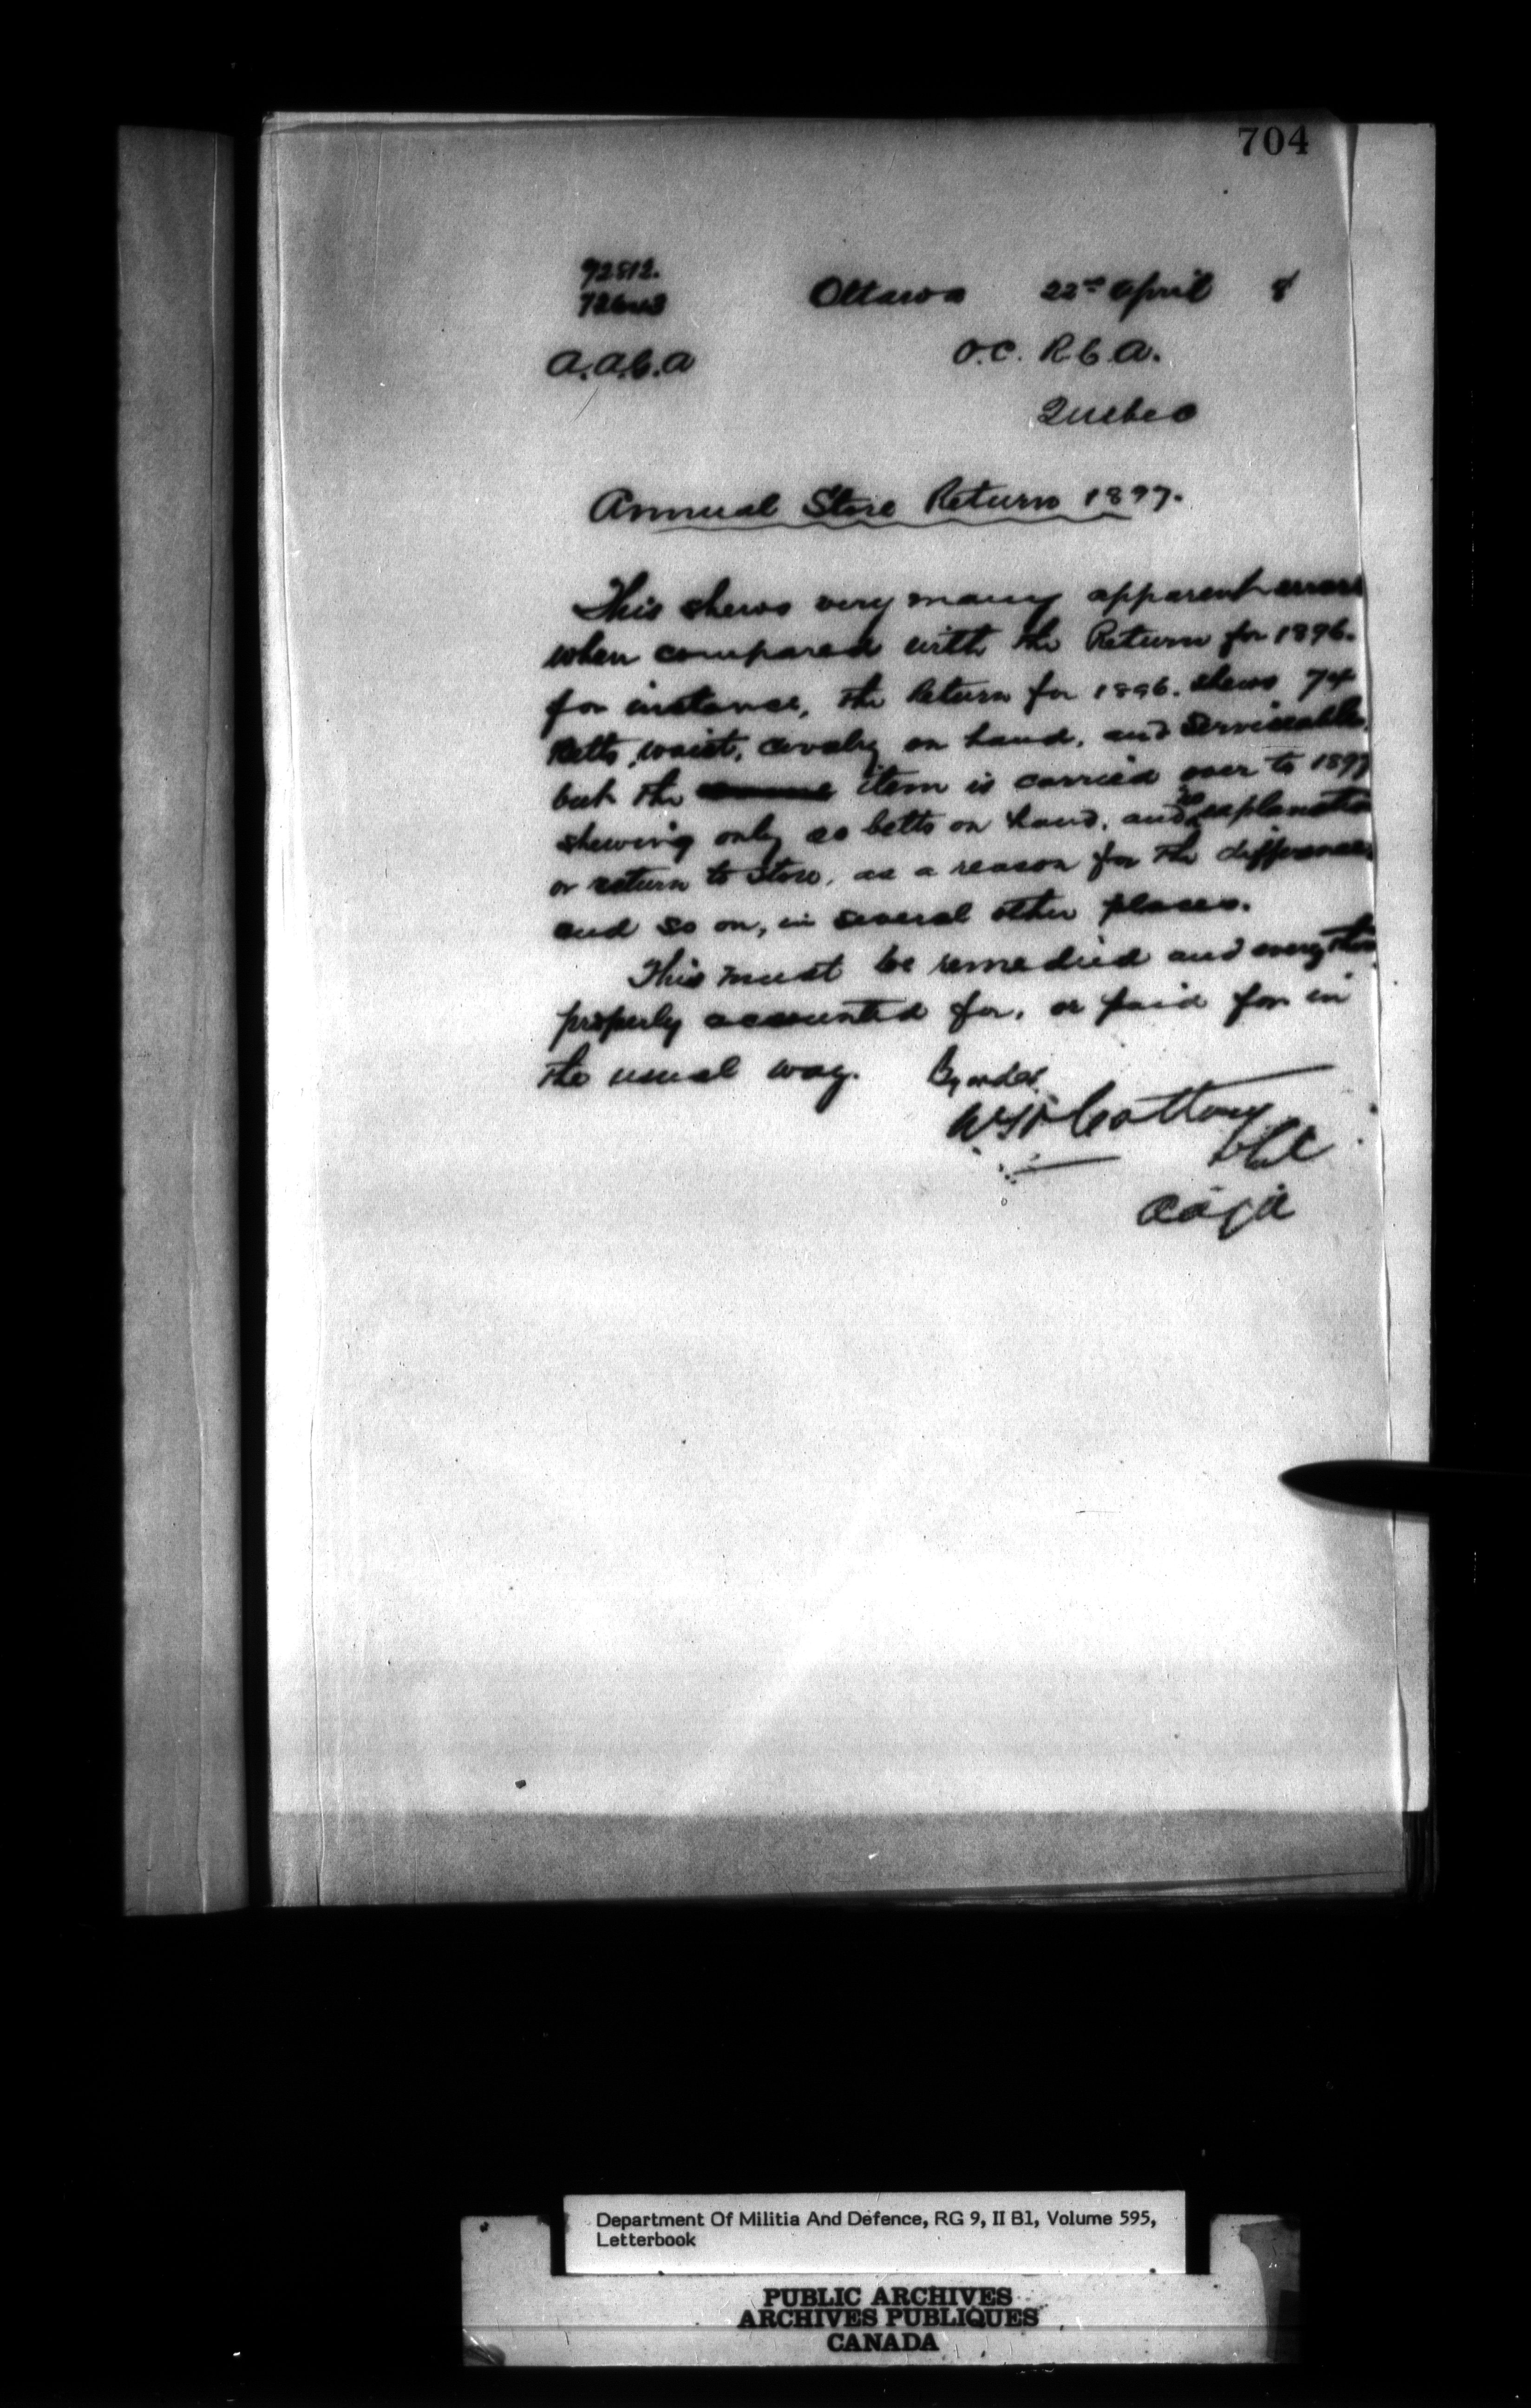 704
92812.
Ottawa 22nd April 8
A.A.G.A
O.C. R.C.A.
Quebec
Annual Store Return 1897.
This shews very many apparent errors
when compared with the Return for 1896.
for instance, the Return for 1896. shews 74
Belts, waist, cavalry on hand, and serviceable,
but the item is carried over to 1897
shewing only 20 belts on hand, and no explanation
or return to store, as a reason for the difference
and so on, in several other places.
This must be remedied and every thing
properly accounted for, or paid for in
the usual way. By order
Cotton
Department Of Militia And Defence, RG 9, II B1, Volume 595,
Letterbook
PUBLIC ARCHIVES
ARCHIVES PUBLIQUES
CANADA